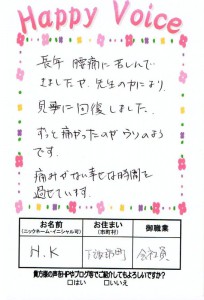 Happy Voice
長年 腰痛に苦しんで
きましたが、先生のおかげにより、
見事に回復しました。
ずっと痛かったのがウソのよう
です。
痛みがない幸せな時間を
過せています。
お名前
(ニックネーム・イニシャル可)
お住まい
(市町村)
御職業
H.K
会社員
貴方様の声をHPやブログ等でご紹介してもよろしいですか?
□はい □いいえ